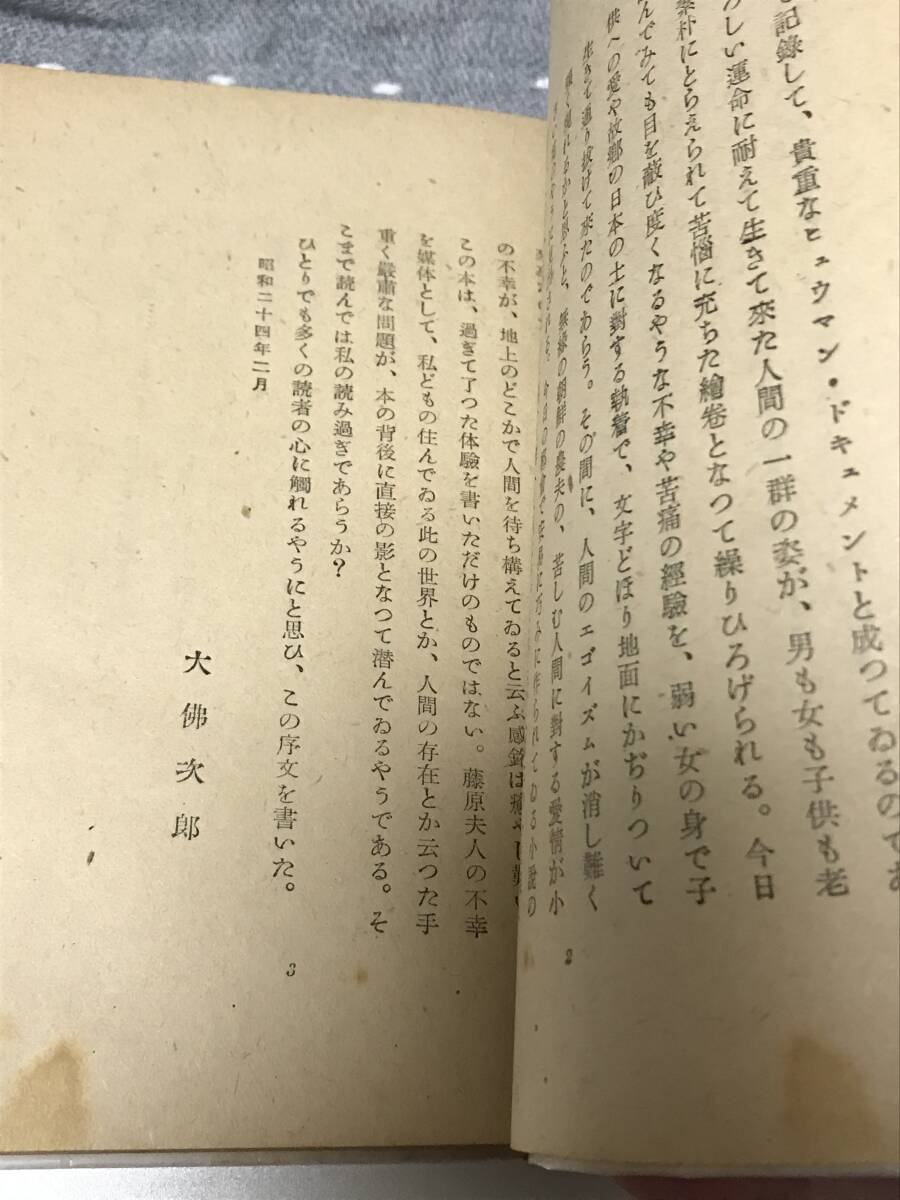 記錄して、貴重なヒュウマン・ドキュメントと成つてゐるのであ
しい運命に耐えて生きて來た人間の一群の姿が、男も女も子供も老
朴にとらえられて苦惱に充ちた繪卷となつて繰りひろげられる。今日
んでみても目を蔽ひ度くなるやうな不幸や苦痛の經驗を、弱い女の身で子
供への愛や故鄕の日本の土に對する執着で、文字どほり地面にかぢりついて
生きて通り拔けて來たのであらう。その間に、人間のエゴイズムが消し難く
現れるかと思ふと、の朝鮮の農夫の、苦しむ人間に對する愛情が小
に巧みに作られてゐる小說の
2
の不幸が、地上のどこかで人間を待ち構えてゐると云ふ感
この本は、過ぎて了つた体驗を書いただけのものではない。藤原夫人の不幸
を媒体として、私どもの住んでゐる此の世界とか、人間の存在とか云つた手
重く嚴肅な問題が、本の背後に直接の影となつて潜んでゐるやうである。そ
こまで読んでは私の読み過ぎであらうか?
ひとりでも多くの読者の心に觸れるやうにと思ひ、この序文を書いた。
昭和二十四年二月
大佛次郎
3